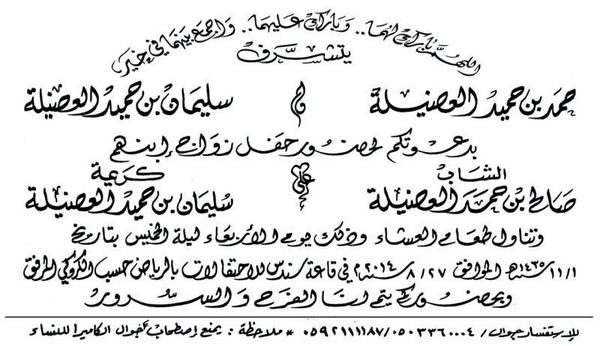 اللهم بارك لهما.. وبارك عليهما.. واجمع بينهما في خير
يتشرف
حمد بن حميد العصنيلة و سليمان بن حميد العصنيلة
بدعوتكم لحضور حفل زواج إبنهم
الشاب كريمة
صالح بن حمد العصنيلة على سليمان بن حميد العصنيلة
وتناول طعام العشاء وذلك يوم الأربعاء ليلة الخميس بتاريخ
١٤٣٥/١١/١هـ الموافق ٢٠١٤/٨/٢٧م في قاعة سندس للاحتفالات بالرياض حسب الكروكي المرفق
وبحضوركم يتم لنا الفرح والسرور
للإستفسار جوال / ٠٥٠٣٣٦٠٠٠٤ / ٠٥٩٢١١١١٨٧ * ملاحظة : يمنع إصطحاب جوال الكاميرا للنساء